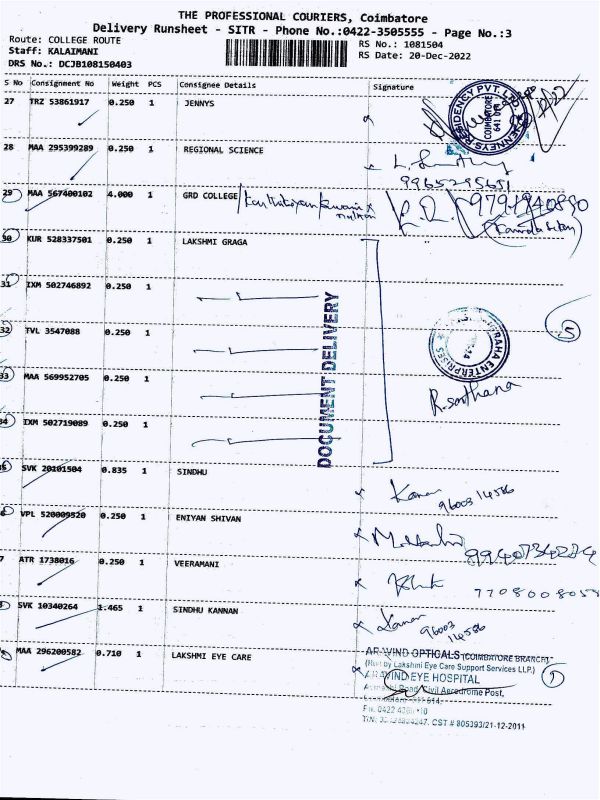 THE PROFESSIONAL COURIERS, Coimbatore
Delivery Runsheet - SITR - Phone No.:0422-3505555 - Page No.:3
Route: COLLEGE ROUTE
Staff: KALAIMANI
DRS No.: DCJB108150403
RS No.: 1081504
RS Date: 20-Dec-2022
S No Consignment No Weight PCS Consignee Details Signature
27 TRZ 53861917 0.250 1 JENNYS
JENNEYS RESIDENCY PVT. LTD. COIMBATORE 641 014
28 MAA 295399289 0.250 1 REGIONAL SCIENCE
9965295651
29 MAA 567400102 4.000 1 GRD COLLEGE
9791940890
30 KUR 528337501 0.250 1 LAKSHMI GRAGA
31 IXM 502746892 0.250 1
32 TVL 3547088 0.250 1
5
33 MAA 569952705 0.250 1
R. Sasthana
34 IXM 502719089 0.250 1
DOCUMENT DELIVERY
35 SVK 20101504 0.835 1 SINDHU
Kanan
96003 14586
6 VPL 520009520 0.250 1 ENIYAN SHIVAN
9940734274
7 ATR 1738016 0.250 1 VEERAMANI
7708008058
8 SVK 10340264 1.465 1 SINDHU KANNAN
Kanan
96003
14586
9 MAA 296200582 0.710 1 LAKSHMI EYE CARE
ARAVIND OPTICALS (COIMBATORE BRANCH)
(Run by Lakshmi Eye Care Support Services LLP.)
ARAVIND EYE HOSPITAL
Road, Civil Aerodrome Post,
CST # 805393/21-12-2011
1